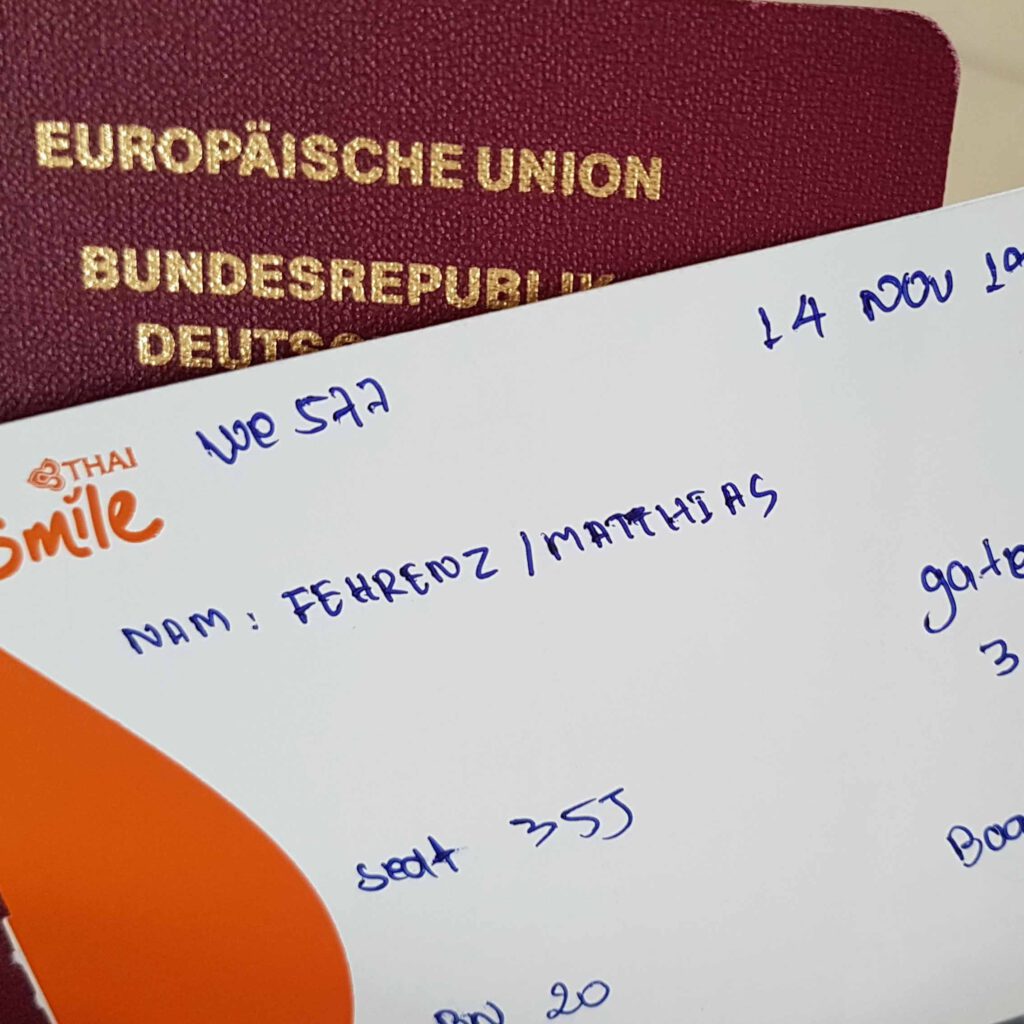 EUROPÄISCHE UNION
BUNDESREPUBLIK
14 NOV 19
WE 577
THAI
smile
NAM: FEHRENZ / MATTHIAS
gate
3
seat 35J
BN 20